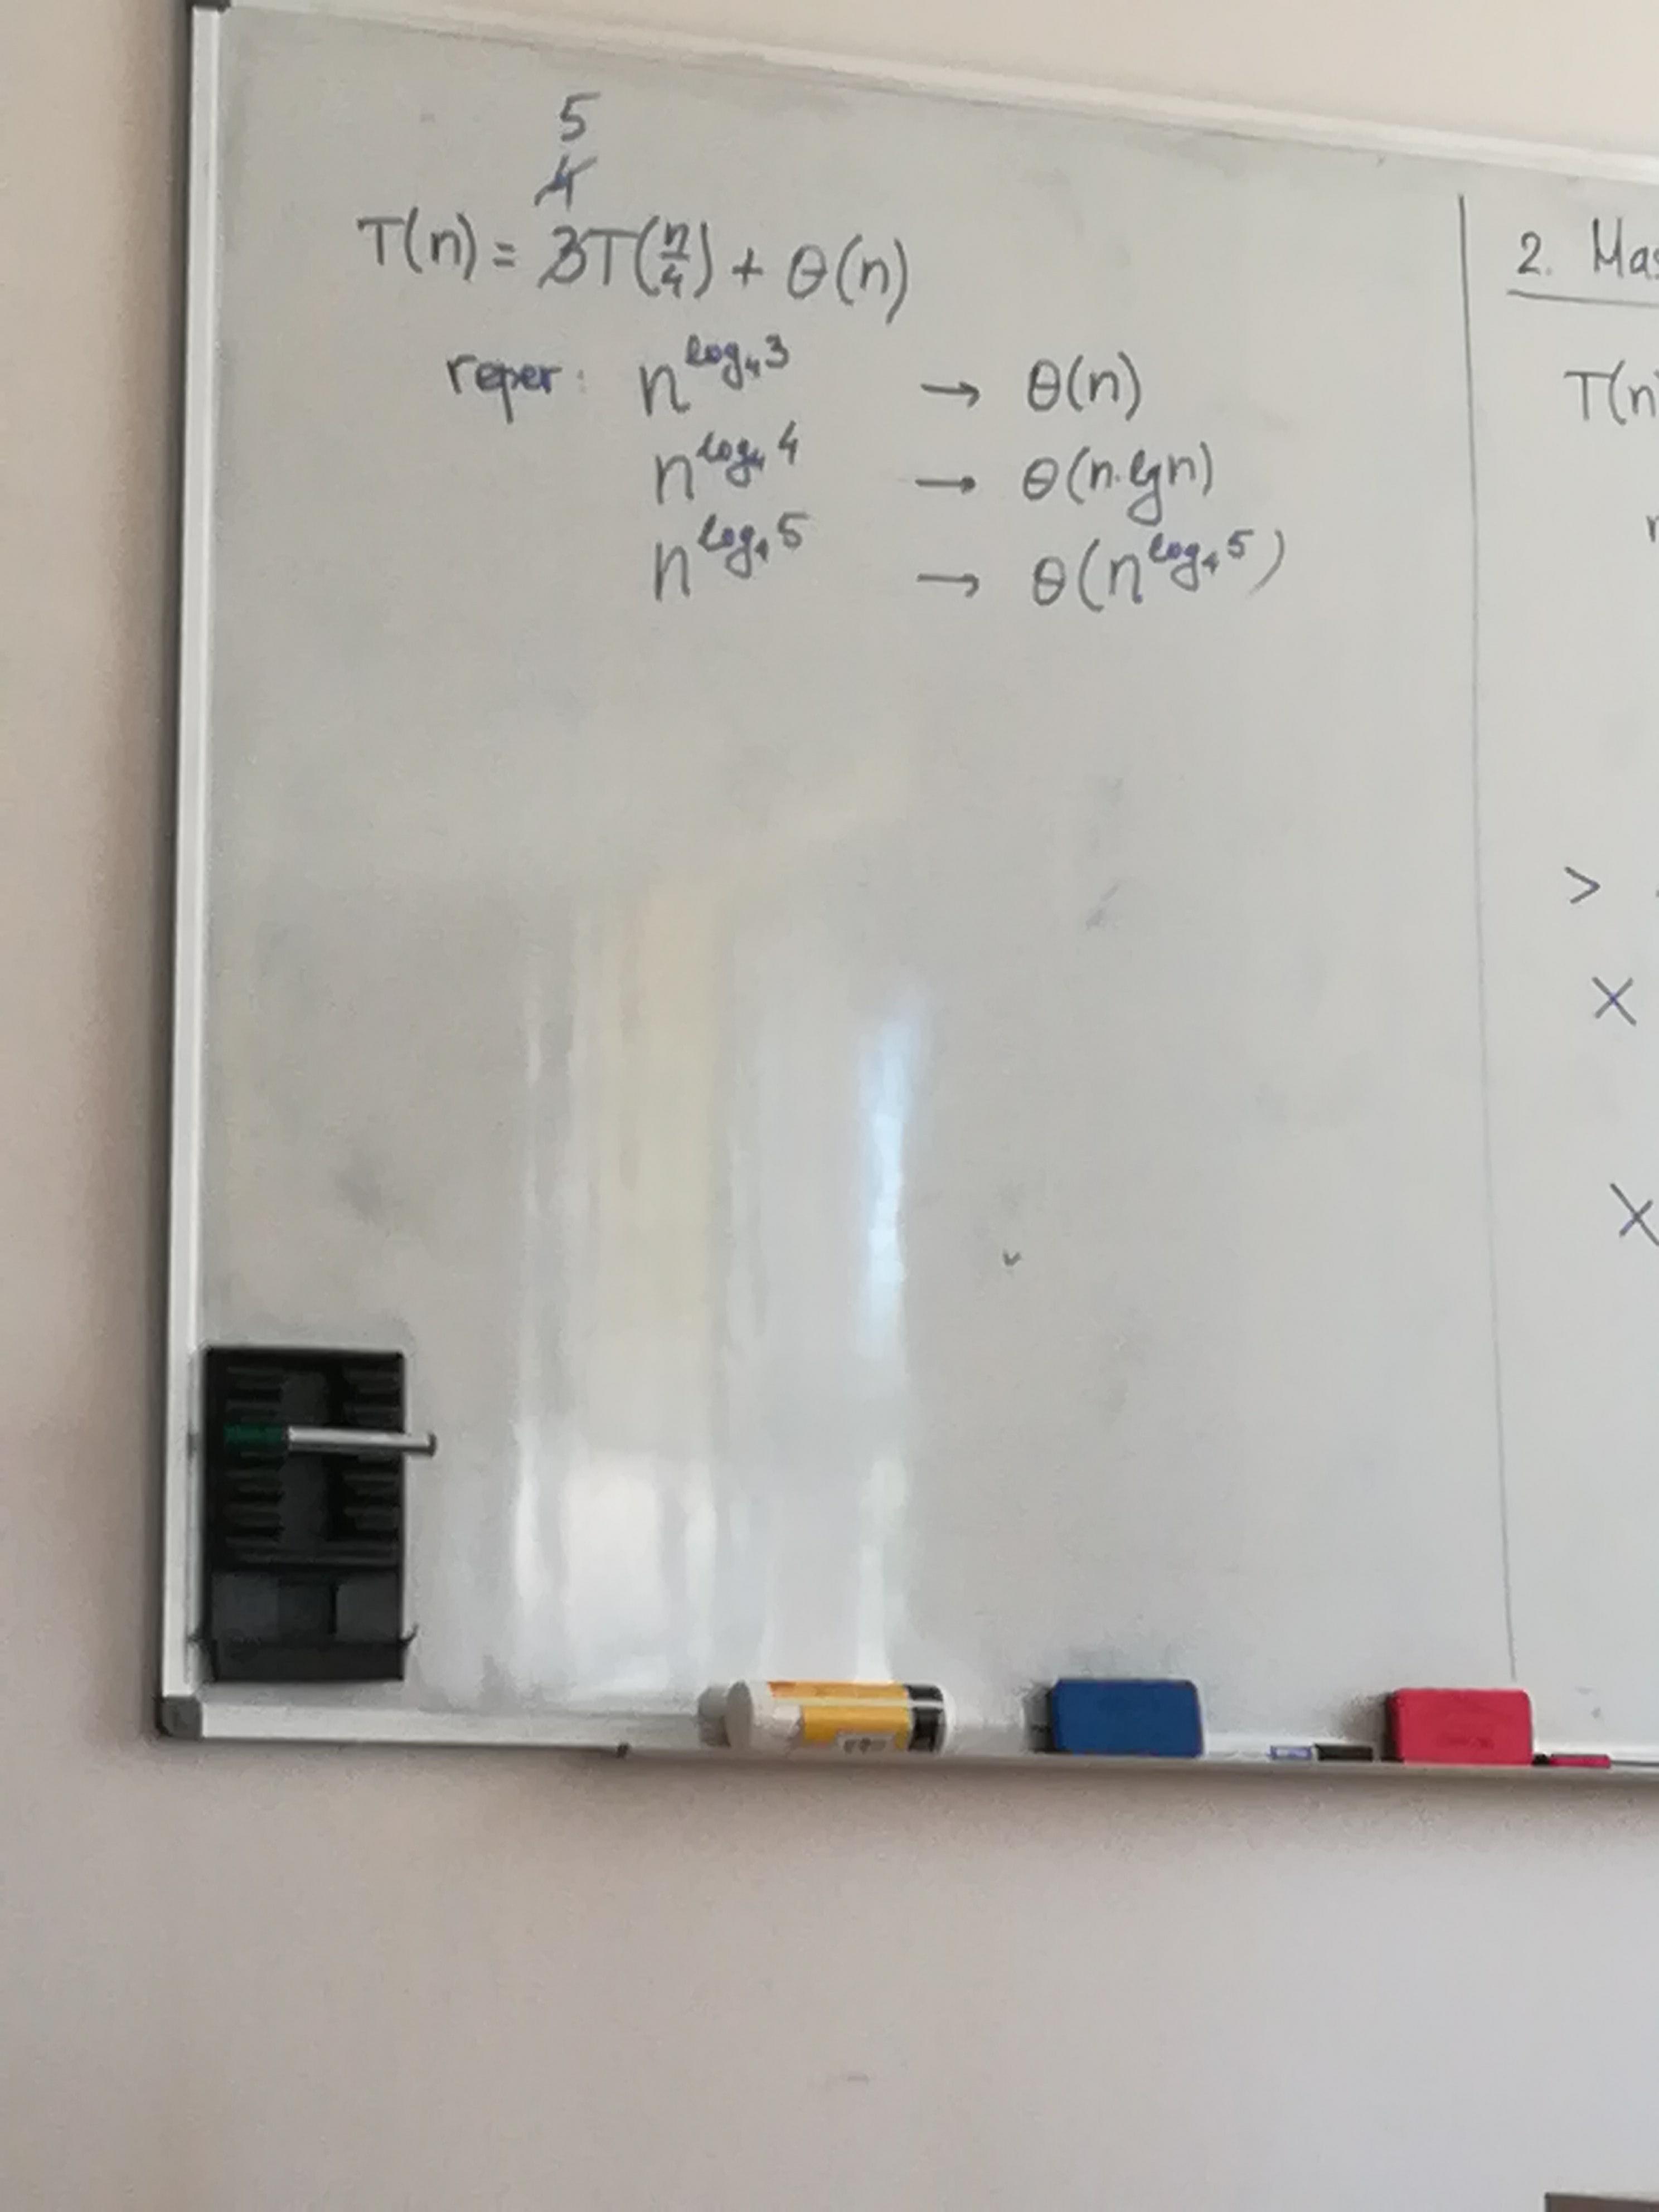 5
4
T(n) = 3T(n/4) + Θ(n)
reper: n^log₄3 → Θ(n)
n^log₄4 → Θ(n·lgn)
n^log₄5 → Θ(n^log₄5)
2. Mas
T(n)
>
X
X